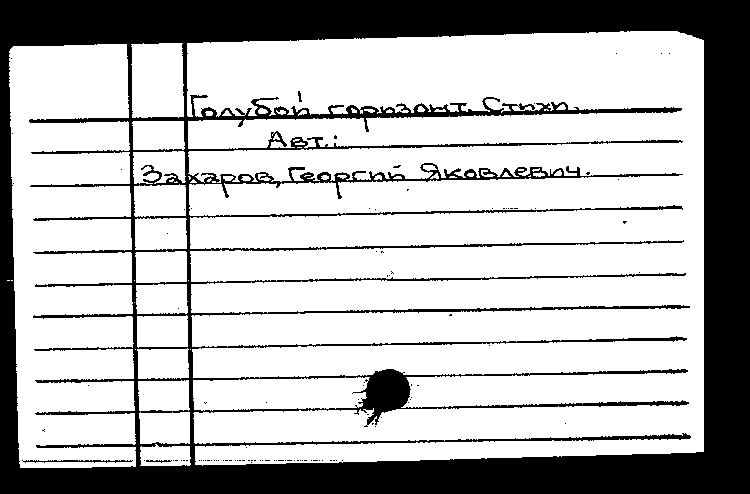 Голубой горизонт. Стихи.
Авт.:
Захаров, Георгий Яковлевич.